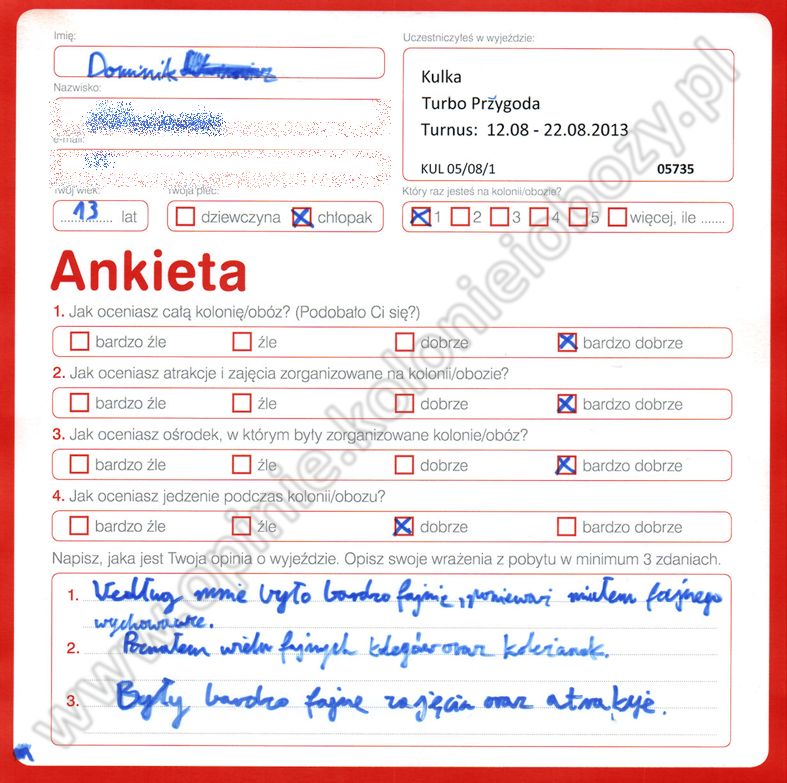 Imię:
Dominik
Nazwisko:
e-mail:
Twój wiek:
13 lat
Twoja płeć:
dziewczyna chłopak
Uczestniczyłeś w wyjeździe:
Kulka
Turbo Przygoda
Turnus: 12.08 - 22.08.2013
KUL 05/08/1 05735
Który raz jesteś na kolonii/obozie?
1 2 3 4 5 więcej, ile .......
Ankieta
1. Jak oceniasz całą kolonię/obóz? (Podobało Ci się?)
bardzo źle źle dobrze bardzo dobrze
2. Jak oceniasz atrakcje i zajęcia zorganizowane na kolonii/obozie?
bardzo źle źle dobrze bardzo dobrze
3. Jak oceniasz ośrodek, w którym były zorganizowane kolonie/obóz?
bardzo źle źle dobrze bardzo dobrze
4. Jak oceniasz jedzenie podczas kolonii/obozu?
bardzo źle źle dobrze bardzo dobrze
Napisz, jaka jest Twoja opinia o wyjeździe. Opisz swoje wrażenia z pobytu w minimum 3 zdaniach.
1. Według mnie było bardzo fajnie, ponieważ miałem fajnego
wychowawce.
2. Poznałem wielu fajnych kolegów oraz koleżanek.
3. Były bardzo fajne zajęcia oraz atrakcje.
www.opinie.kolonieiobozy.pl